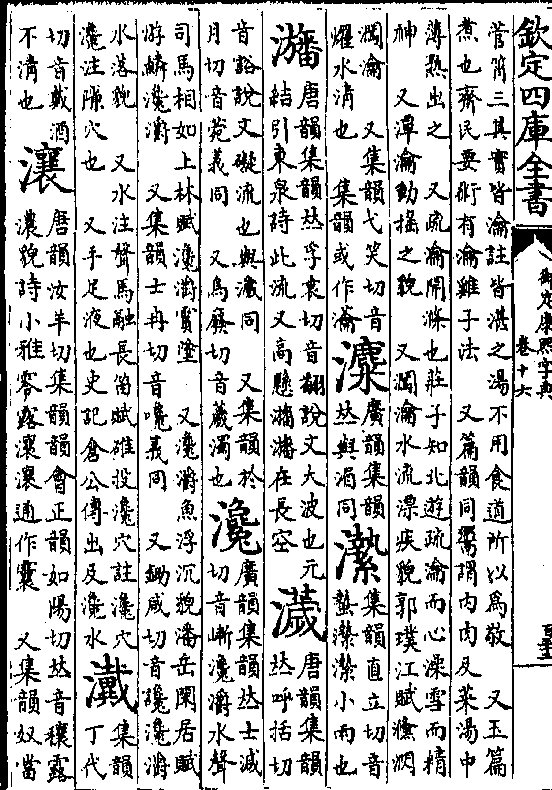 欽定四庫全書
御定康熙字典
卷十六
菅筲三其實皆瀹註皆湛之湯不用食道所以為敬　又玉篇
煮也齊民要術有瀹雞子法　又篇韻同謂内肉及菜湯中
薄熟出之　又疏瀹開滌也莊子知北遊疏瀹而心澡雪而精
神　又潭瀹動揺之貌　又濶瀹水流漂疾貌郭璞江賦
濶瀹　又集韻弋笑切音
燿水清也　集韻或作
廣韻集韻
𠀤與湄同
集韻直立切音
蟄小雨也
㶗
唐韻集韻𠀤孚袁切音翻說文大波也元
結引東泉詩此流又高懸㶗㶗在長空
唐韻集韻
𠀤呼括切
音豁說文礙流也與濊同　又集韻於
月切音義同　又烏廢切音薉濁也
瀺
廣韻集韻𠀤士減
切音嶃瀺灂水聲
司馬相如上林賦瀺灂霣墜　又瀺灂魚浮沉貌潘岳閒居賦
游鱗瀺灂　又集韻士冉切音嚵義同　又鋤咸切音讒瀺灂
水落貌　又水注聲馬融長笛賦碓投瀺穴註瀺穴
瀺注隙穴也　又手足液也史記倉公傳出及瀺水
瀻
集韻
丁代
切音戴酒
不清也
瀼
唐韻汝羊切集韻韻會正韻如陽切𠀤音穰露
濃貌詩小雅零露瀼瀼通作囊　又集韻奴當